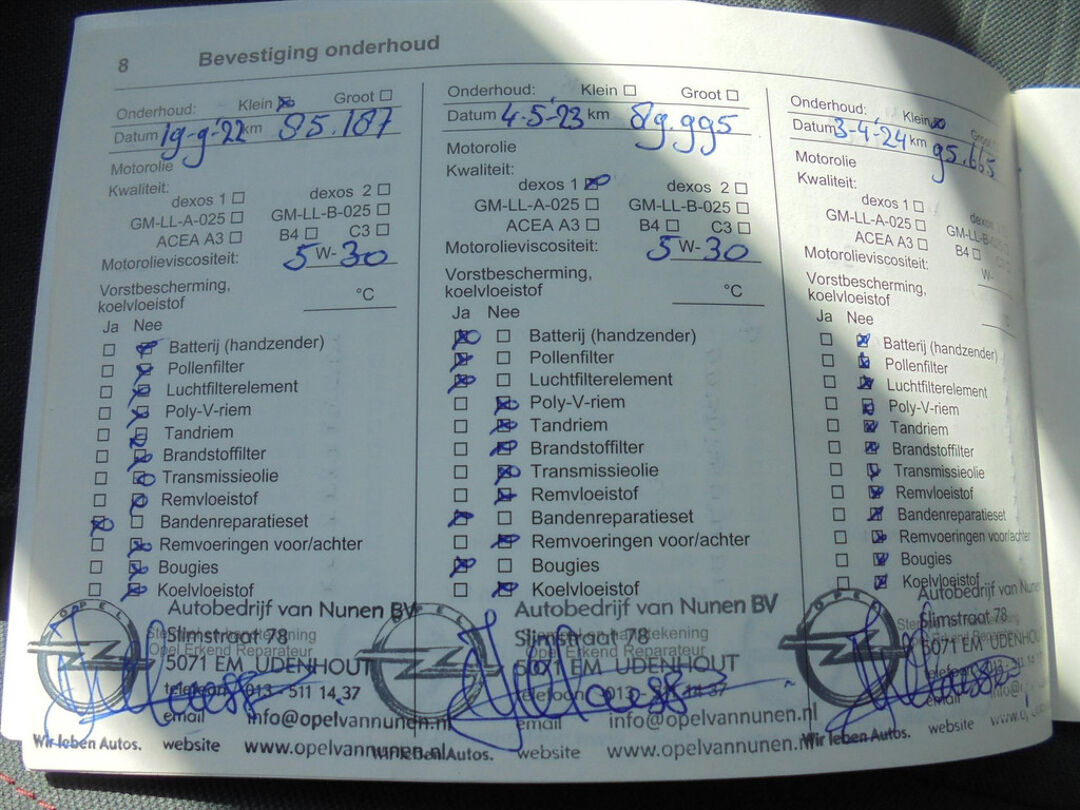 8 Bevestiging onderhoud
Onderhoud: Klein Groot
Datum 19-9-'22 km 85.187
Motorolie
Kwaliteit:
dexos 1 dexos 2
GM-LL-A-025 GM-LL-B-025
ACEA A3 B4 C3
Motorolieviscositeit: 5 W- 30
Vorstbescherming,
koelvloeistof °C
Ja Nee
Batterij (handzender)
Pollenfilter
Luchtfilterelement
Poly-V-riem
Tandriem
Brandstoffilter
Transmissieolie
Remvloeistof
Bandenreparatieset
Remvoeringen voor/achter
Bougies
Koelvloeistof
OPEL
Autobedrijf van Nunen BV
Slimstraat 78
Opel Erkend Reparateur
5071 EM UDENHOUT
telefoon 013 - 511 14 37
email info@opelvannunen.nl
Wir leben Autos. website www.opelvannunen.nl
Onderhoud: Klein Groot
Datum 4-5-'23 km 89.995
Motorolie
Kwaliteit:
dexos 1 dexos 2
GM-LL-A-025 GM-LL-B-025
ACEA A3 B4 C3
Motorolieviscositeit: 5 W- 30
Vorstbescherming,
koelvloeistof °C
Ja Nee
Batterij (handzender)
Pollenfilter
Luchtfilterelement
Poly-V-riem
Tandriem
Brandstoffilter
Transmissieolie
Remvloeistof
Bandenreparatieset
Remvoeringen voor/achter
Bougies
Koelvloeistof
Autobedrijf van Nunen BV
Slimstraat 78
Opel Erkend Reparateur
5071 EM UDENHOUT
telefoon 013 - 511 14 37
email info@opelvannunen.nl
Wir leben Autos. website www.opelvannunen.nl
Onderhoud: Klein Groot
Datum 3-4-'24 km 95.665
Motorolie
Kwaliteit:
dexos 1 dexos
GM-LL-A-025 GM-LL-B-025
ACEA A3 B4
Motorolieviscositeit: W-
Vorstbescherming,
koelvloeistof
Ja Nee
Batterij (handzender)
Pollenfilter
Luchtfilterelement
Poly-V-riem
Tandriem
Brandstoffilter
Transmissieolie
Remvloeistof
Bandenreparatieset
Remvoeringen voor/achter
Bougies
Koelvloeistof
Autobedrijf van Nunen
Slimstraat 78
Opel Erkend Reparateur
5071 EM UDENHOU
telefoon 013
email info@
Wir leben Autos. website www.